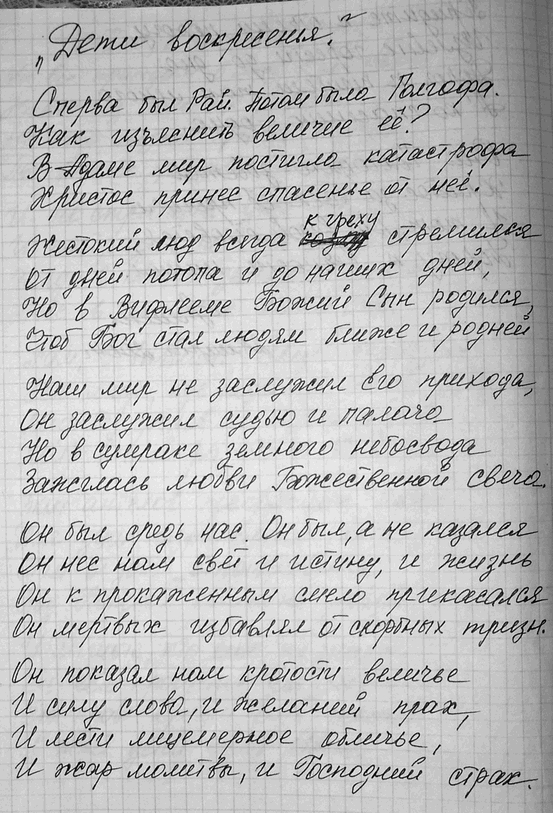 „Дети воскресенья."
Сперва был Рай. Потом была Голгофа.
Как изъяснить величие её?
В Адаме мир постигла катастрофа
Христос принес спасенье от неё.
Жестокий люд всегда к греху стремился
От дней потопа и до наших дней,
Но в Вифлееме Божий Сын родился,
Чтоб Бог стал людям ближе и родней
Наш мир не заслужил Его прихода,
Он заслужил судью и палача
Но в сумраке земного небосвода
Зажглась любви Божественной свеча.
Он был средь нас. Он был, а не казался
Он нес нам свет и истину, и жизнь
Он к прокаженным смело прикасался
Он мертвых избавлял от скорбных тризн.
Он показал нам кротости величье
И силу слова, и желаний прах,
И лести лицемерное обличье,
И жар молитвы, и Господний страх.